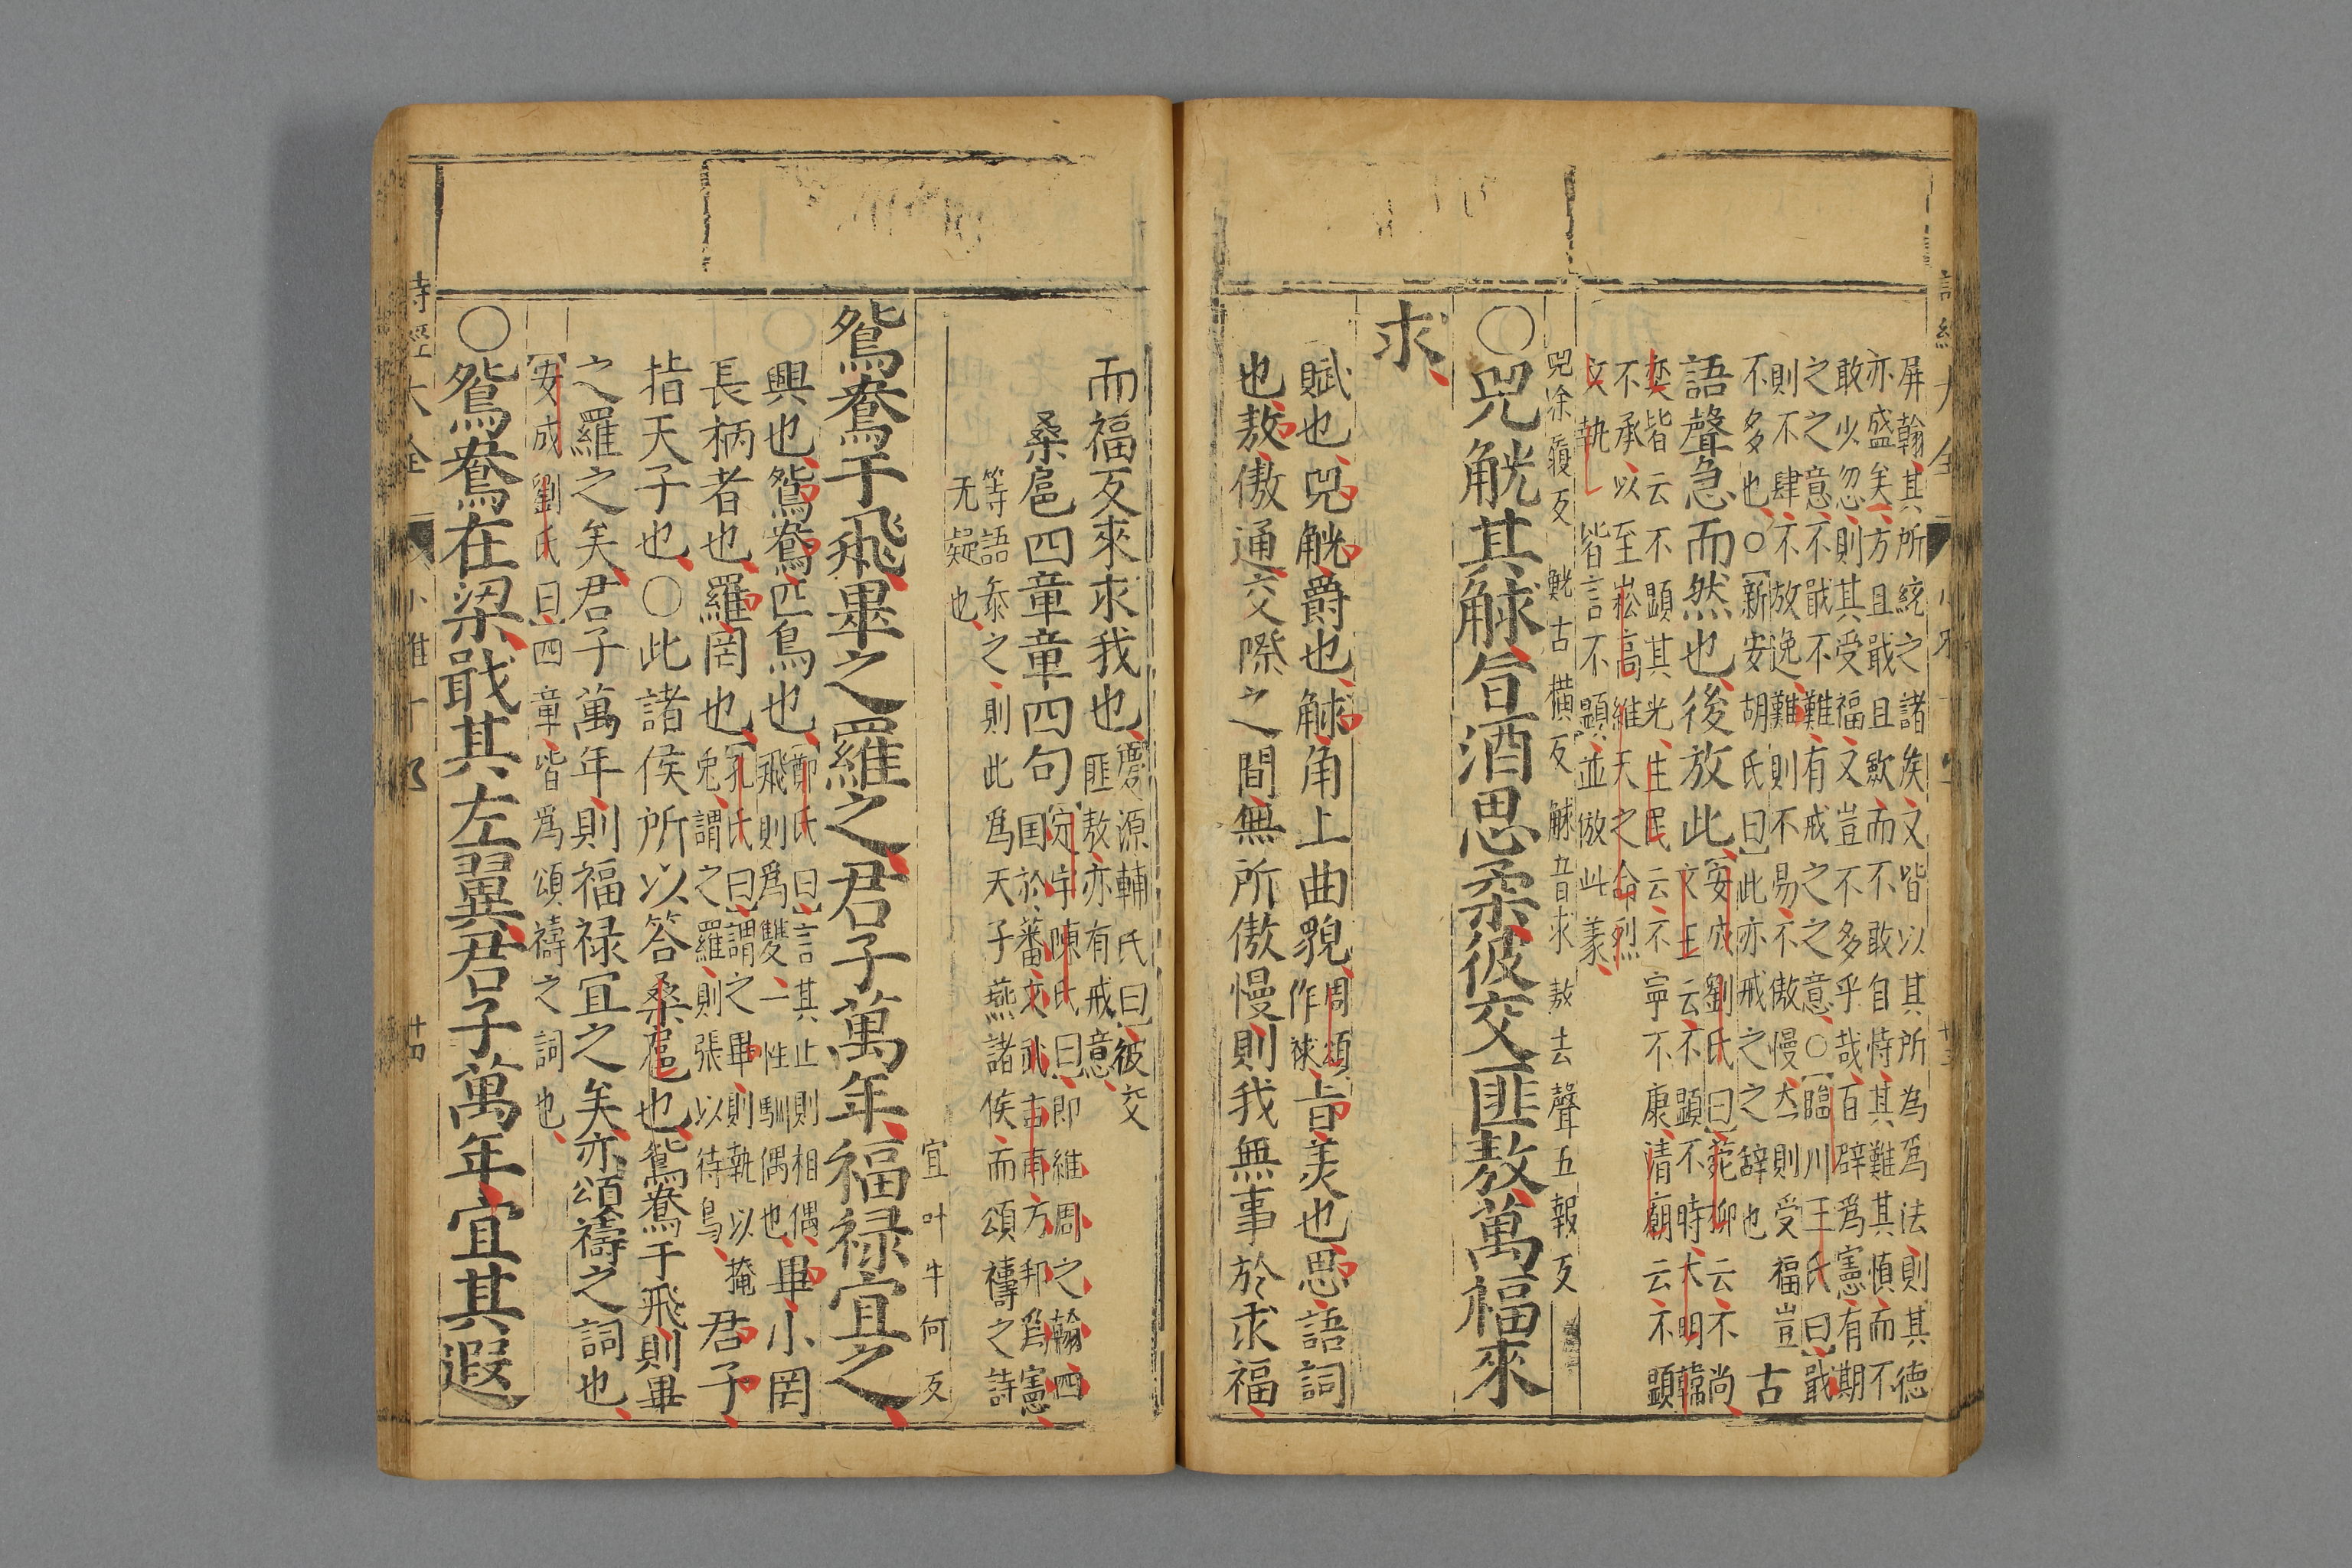 屏翰其所統之諸侯又皆以其所為爲法則其德
亦盛矣方且戢且歛而不敢自恃其難其慎而不
敢少忽則其受福又豈不多乎哉百辟爲憲有期
之之意不戢不難有戒之之意○臨川王氏曰戢
則不肆不放逸難則不易不傲慢太則受福豈
不多也○新安胡氏曰此亦戒之之辭也 古
語聲急而然也後放此 安成劉氏曰菀柳云不尚
文王云不顯不時大明韓
奕皆云不顯其光生民云不寧不康清廟云不顯
不承以至崧高維天之命烈
文執 皆言不顯並倣此義
兕徐履反 觥古橫反 觩音求 敖去聲五報反
○兕觥其觩旨酒思柔彼交匪敖萬福來
求
賦也兕觥爵也觩角上曲貌周頌作捄旨美也思語詞
也敖傲通交際之間無所傲慢則我無事於求福
而福反來求我也慶源輔氏曰彼交
匪敖亦有戒意
桑扈四章章四句定宇陳氏曰即維周之翰四
国於蕃文武吉甫万邦爲憲
等語叅之則此爲天子燕諸侯而頌禱之詩
无疑也
宜叶牛何反
鴛鴦于飛畢之羅之君子萬年福禄宜之
興也鴛鴦匹鳥也鄭氏曰言其止則相偶
飛則爲雙一性馴偶也畢小罔
長柄者也羅罔也孔氏曰謂之畢則執以掩
兔謂之羅則張以待鳥君子
指天子也○此諸侯所以答桑扈也鴛鴦于飛則畢
之羅之矣君子萬年則福禄宜之矣亦頌禱之詞也
安成劉氏曰四章皆爲頌禱之詞也
○鴛鴦在梁戢其左翼君子萬年宜其遐
詩經大全 小雅十九 十四